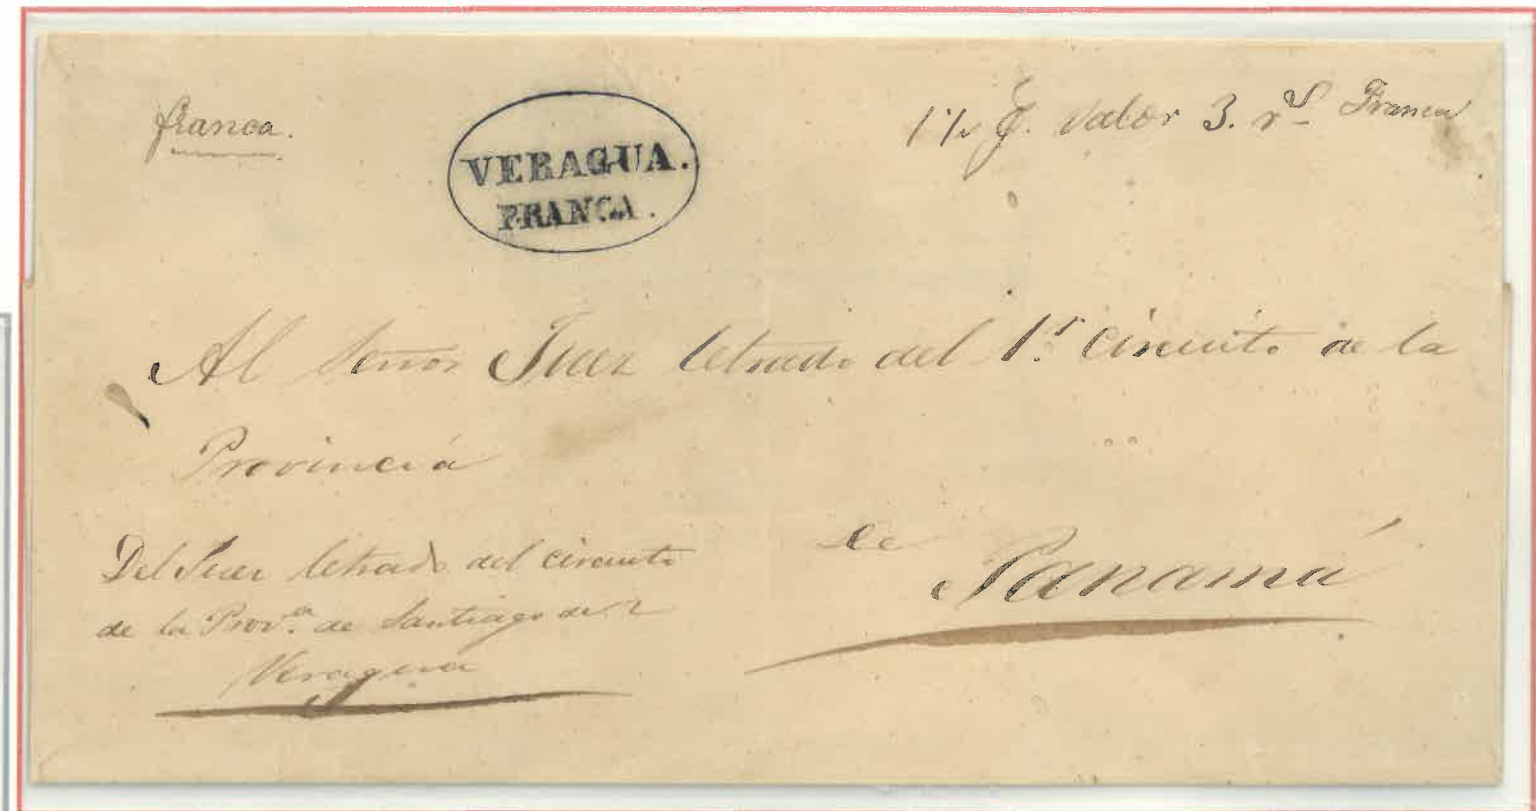 franca.
VERAGUA.
FRANCA.
valor 3. rs Franca
Al Señor Juez letrado del 1r. Circuito de la
Provincia
de
Panamá
Del Juez letrado del circuito
de la Prov.a de Santiago de
Veragua